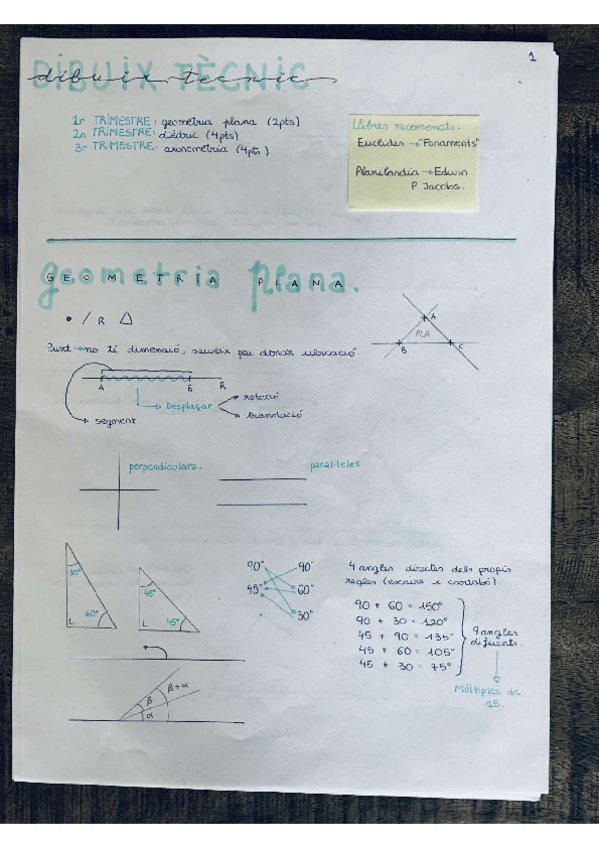 1
DIBUIX TÈCNIC
dibuix tecnic
1r TRIMESTRE: geometria plana (2pts)
2n TRIMESTRE: dièdric (4pts)
3r TRIMESTRE: axonometria (4pts)
Llibres recomenats:
Euclides → "Fonaments"
Planilandia → Edwin
P. Jacobs.
geometria plana.
GEOMETRIA PLANA
• / R △
A
PLA
B C
Punt → no té dimensió, serveix per donar ubicació.
A B R
Desplaçar
rotació
translació
segment
perpendiculars.
paral·leles
30°
60°
L
45°
45°
L
90° 90°
45° 60°
30°
4 angles directes dels propis
regles (escaire i cartabó).
90 + 60 = 150°
90 + 30 = 120°
45 + 90 = 135°
45 + 60 = 105°
45 + 30 = 75°
9 angles
diferents.
Múltiples de
15.
β+α
β
α